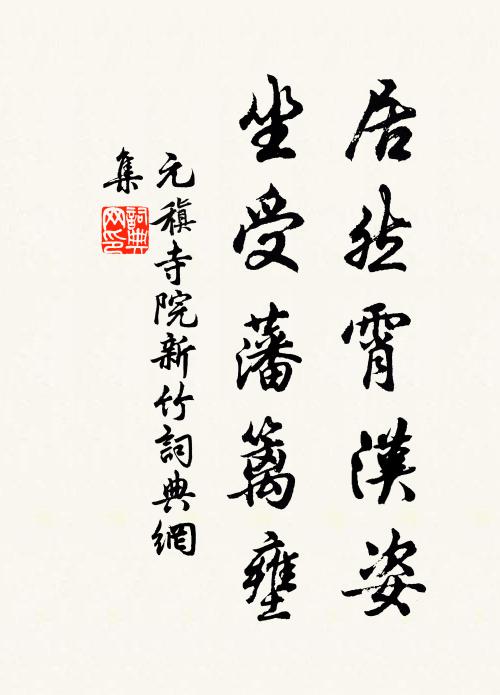 居然霄漢姿
坐受藩籬壅
元稹寺院新竹詞典網
集
詞典
网印